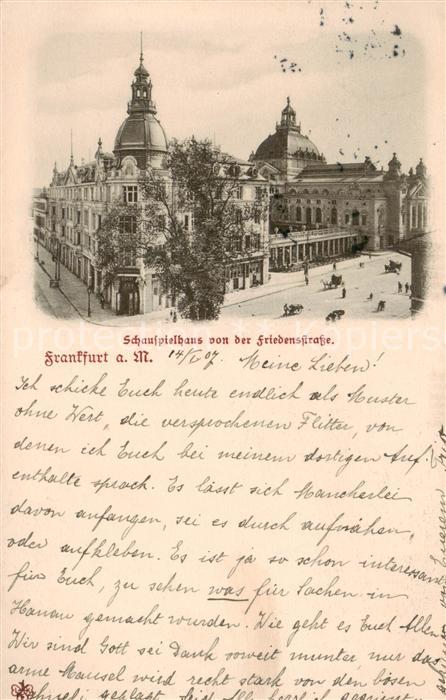 Schauspielhaus von der Friedensstraße.
Frankfurt a. M. 14/I 07. Meine Lieben!
Ich schicke Euch heute endlich als Muster
ohne Wert, die versprochenen Flitter, von
denen ich Euch bei meinem dortigen Auf-
enthalte sprach. Es lässt sich Mancherlei
davon anfangen, sei es durch aufnähen,
oder aufkleben. Es ist ja so schon interessant
für Euch, zu sehen was für Sachen in
Hanau gemacht wurden. Wie geht es Euch Allen
Wir sind Gott sei Dank soweit munter, nur das
arme Mausel wird recht stark von den bösen
geplagt.